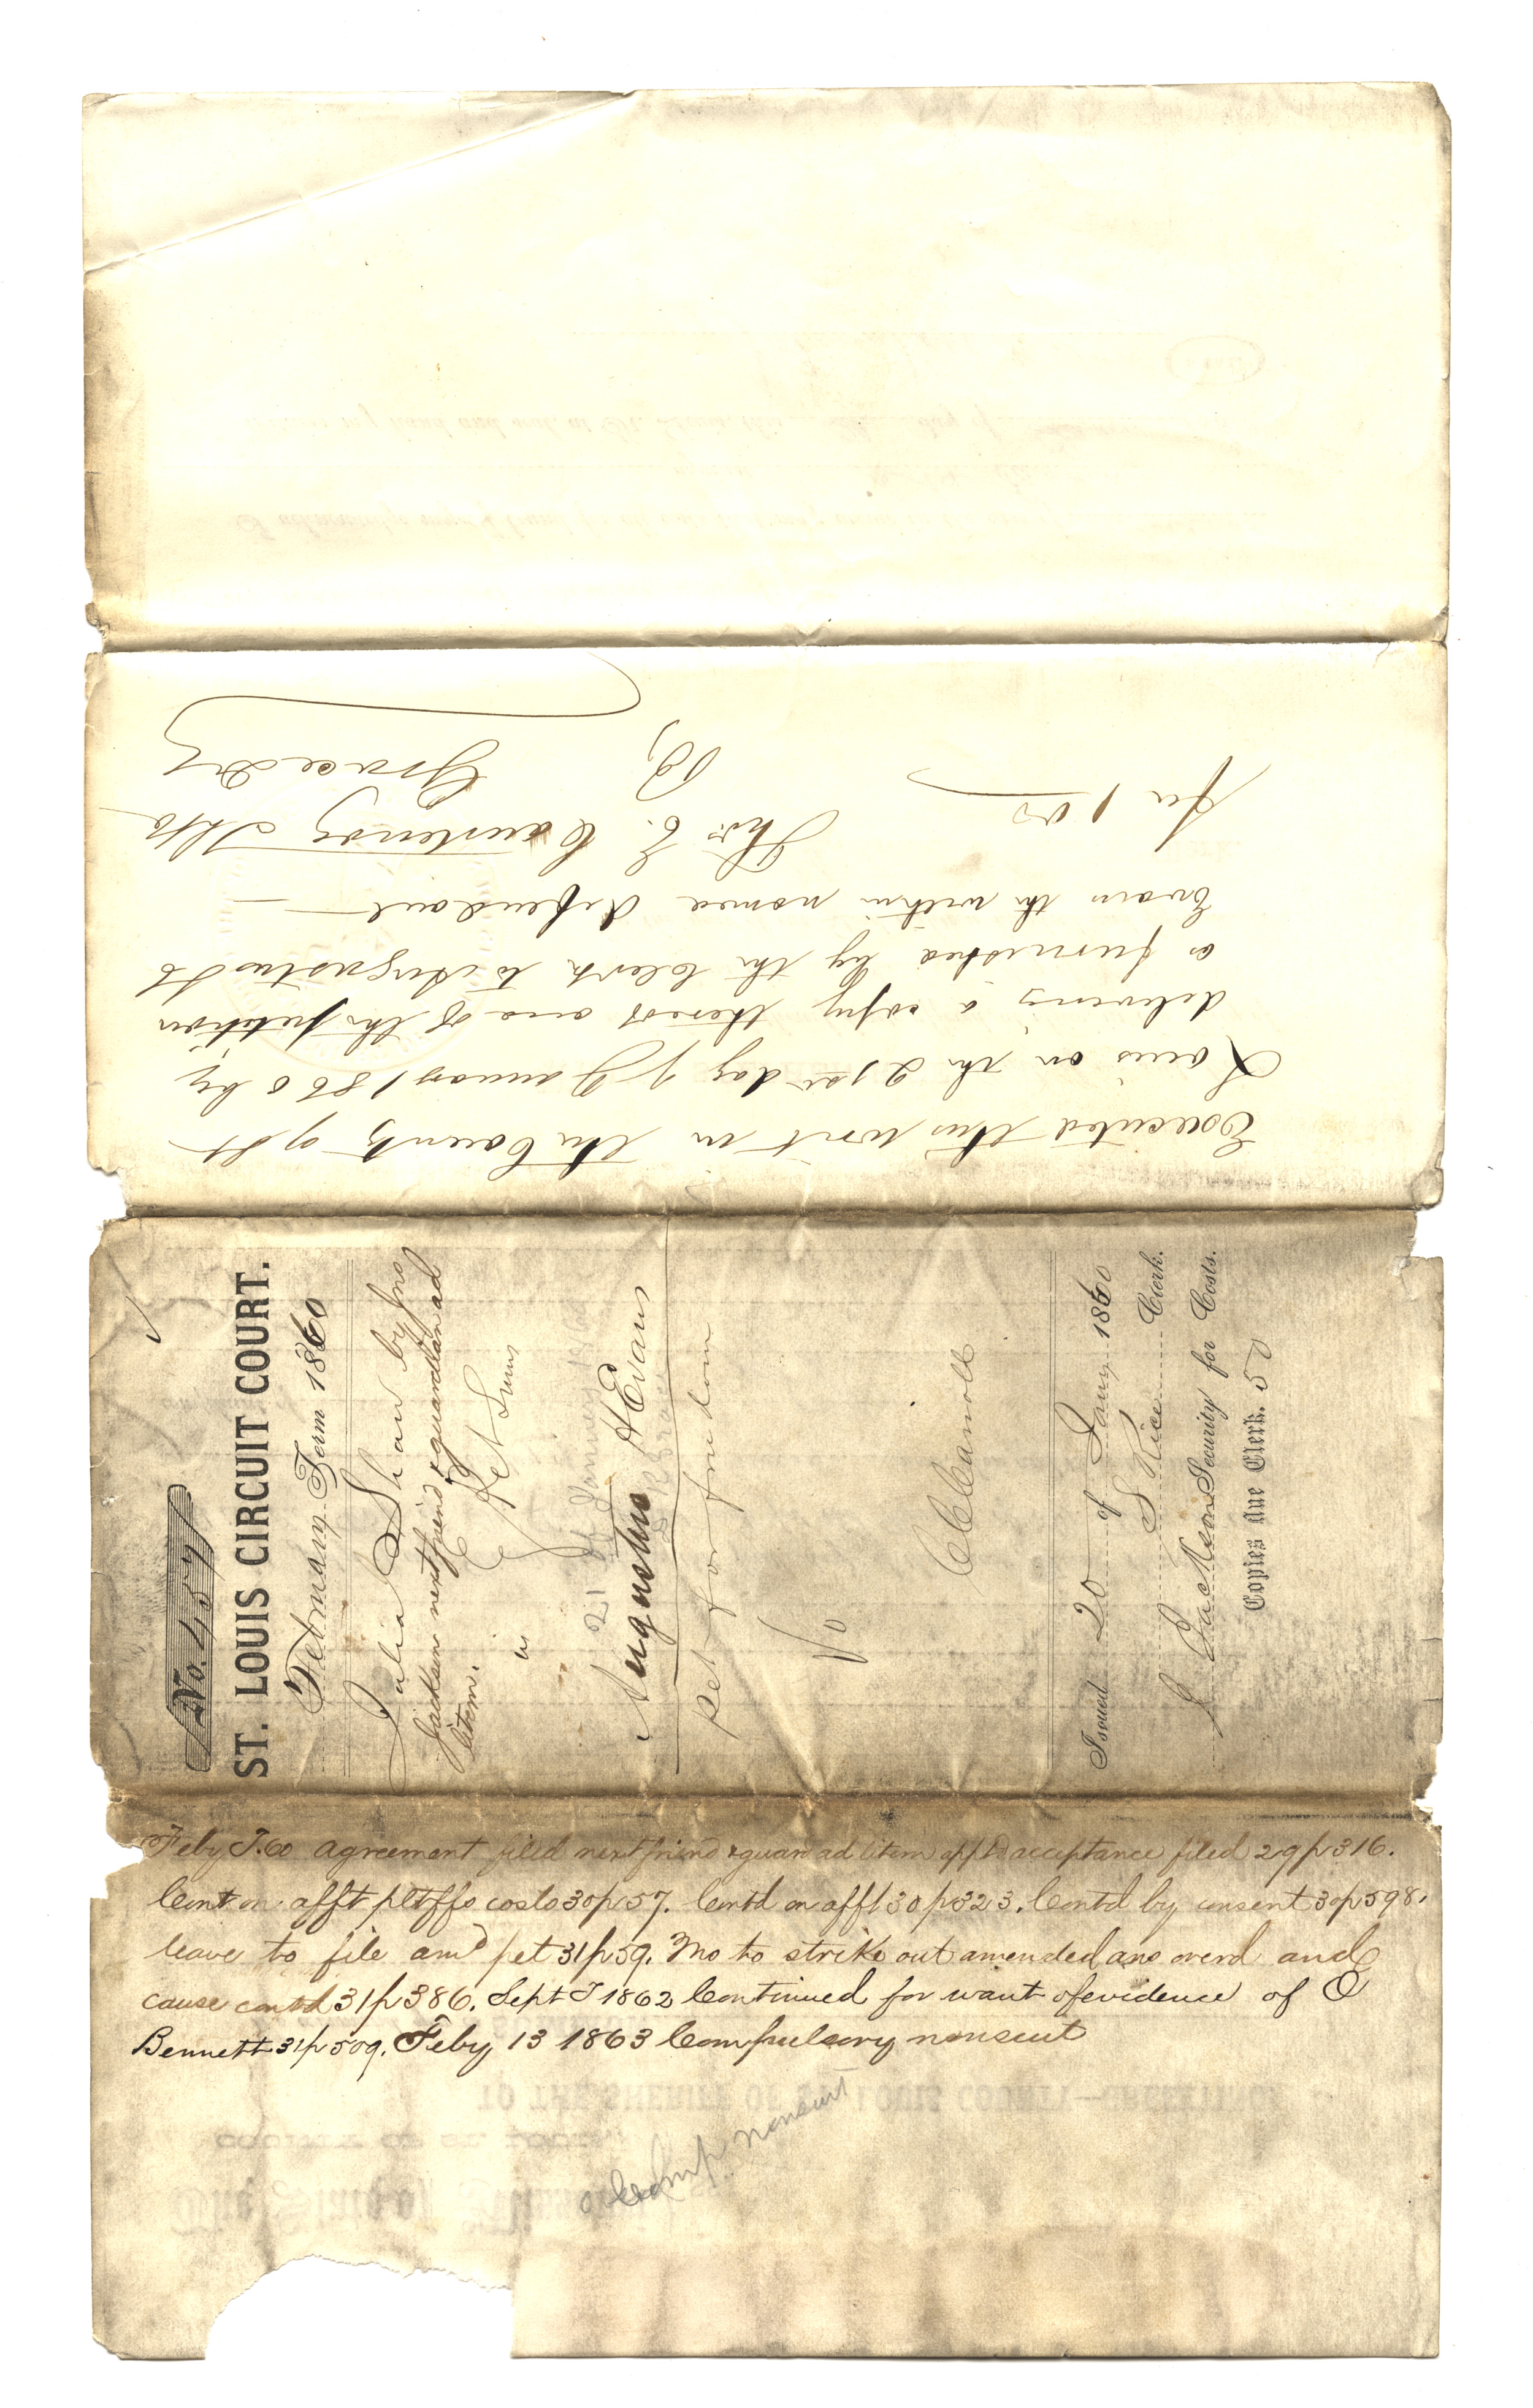 Executed this writ in the County of St
Louis on the 21st day of January 1860 by
delivering a copy thereof and of the petition
as furnished by the Clerk to Augustus H
Evans the within named defendant —
Fee 1 00
Thos. C.
By
Grace
No. 457
ST. LOUIS CIRCUIT COURT.
February Term 1860
Julia Shaw by Jno
Jackson next friend & guardian ad
litem.
vs
21 of January
Augustus H Evans
Pet for freedom
Issued 20 of Jany 1860
S Rice Clerk.
J Jackson Security for Costs.
Copies due Clerk. 50
Feby T. 60 agreement filed next friend & guard ad litem appt'd acceptance filed 29 p 316.
Cont on afft pltffs costs 30 p 57. Contd on afft 30 p 323. Contd by consent 30 p 598.
leave to file amd pet 31 p 59. Mo to strike out amended ans overd and
cause contd 31 p 386. Sept T 1862 Continued for want of evidence of O
Bennett 31 p 509. Feby 13 1863 Compulsory nonsuit
Comp nonsuit
TO THE SHERIFF OF ST. LOUIS COUNTY—GREETING
COUNTY OF ST. LOUIS
The State of Missouri